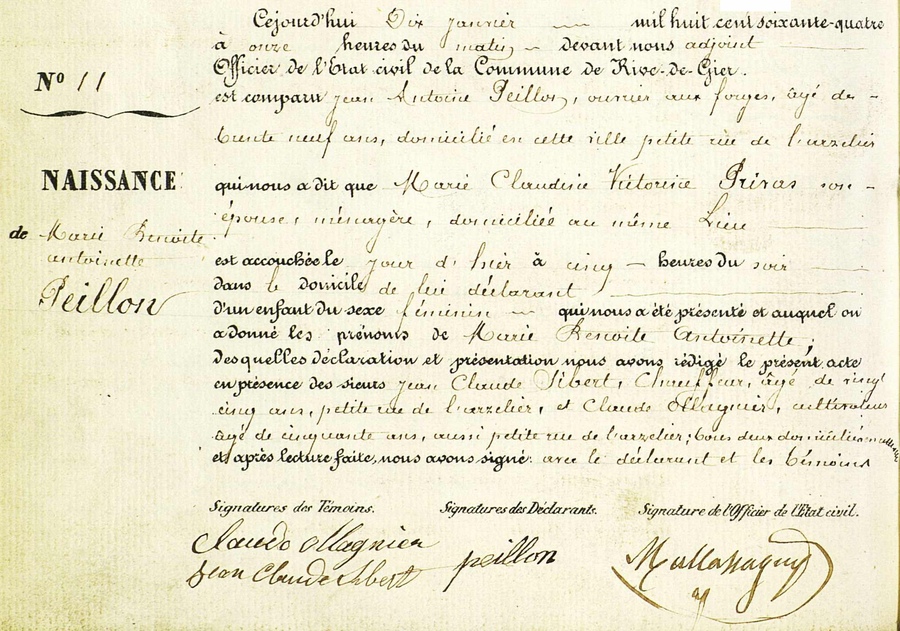 Cejourd'hui Dix janvier mil huit cent soixante-quatre
à onze heures du matin devant nous adjoint
Officier de l'Etat civil de la Commune de Rive-de-Gier.
N° 11
est comparu jean Antoine Peillon, ouvrier aux forges, âgé de
trente neuf ans, domicilié en cette ville petite rue de l'arzelier
NAISSANCE
qui nous a dit que Marie Claudine Victorine Privas son
épouse, ménagère, domiciliée au même Lieu
de Marie Benoite
antoinette
Peillon
est accouchée le jour d'hier à cinq heures du soir
dans le domicile de lui déclarant
d'un enfant du sexe féminin qui nous a été présenté et auquel on
a donné les prénoms de Marie Benoite Antoinette;
desquelles déclaration et présentation nous avons rédigé le présent acte
en présence des sieurs jean Claude Sibert, Chauffeur, âgé de vingt
cinq ans, petite rue de l'arzelier, et Claude Magnien, cultivateur
âgé de cinquante ans, aussi petite rue de l'arzelier; tous deux domiciliés
et après lecture faite, nous avons signé avec le déclarant et les témoins
Signatures des Témoins. Signatures des Déclarants. Signature de l'Officier de l'Etat civil.
Claude Magnien
jean Claude Sibert
peillon